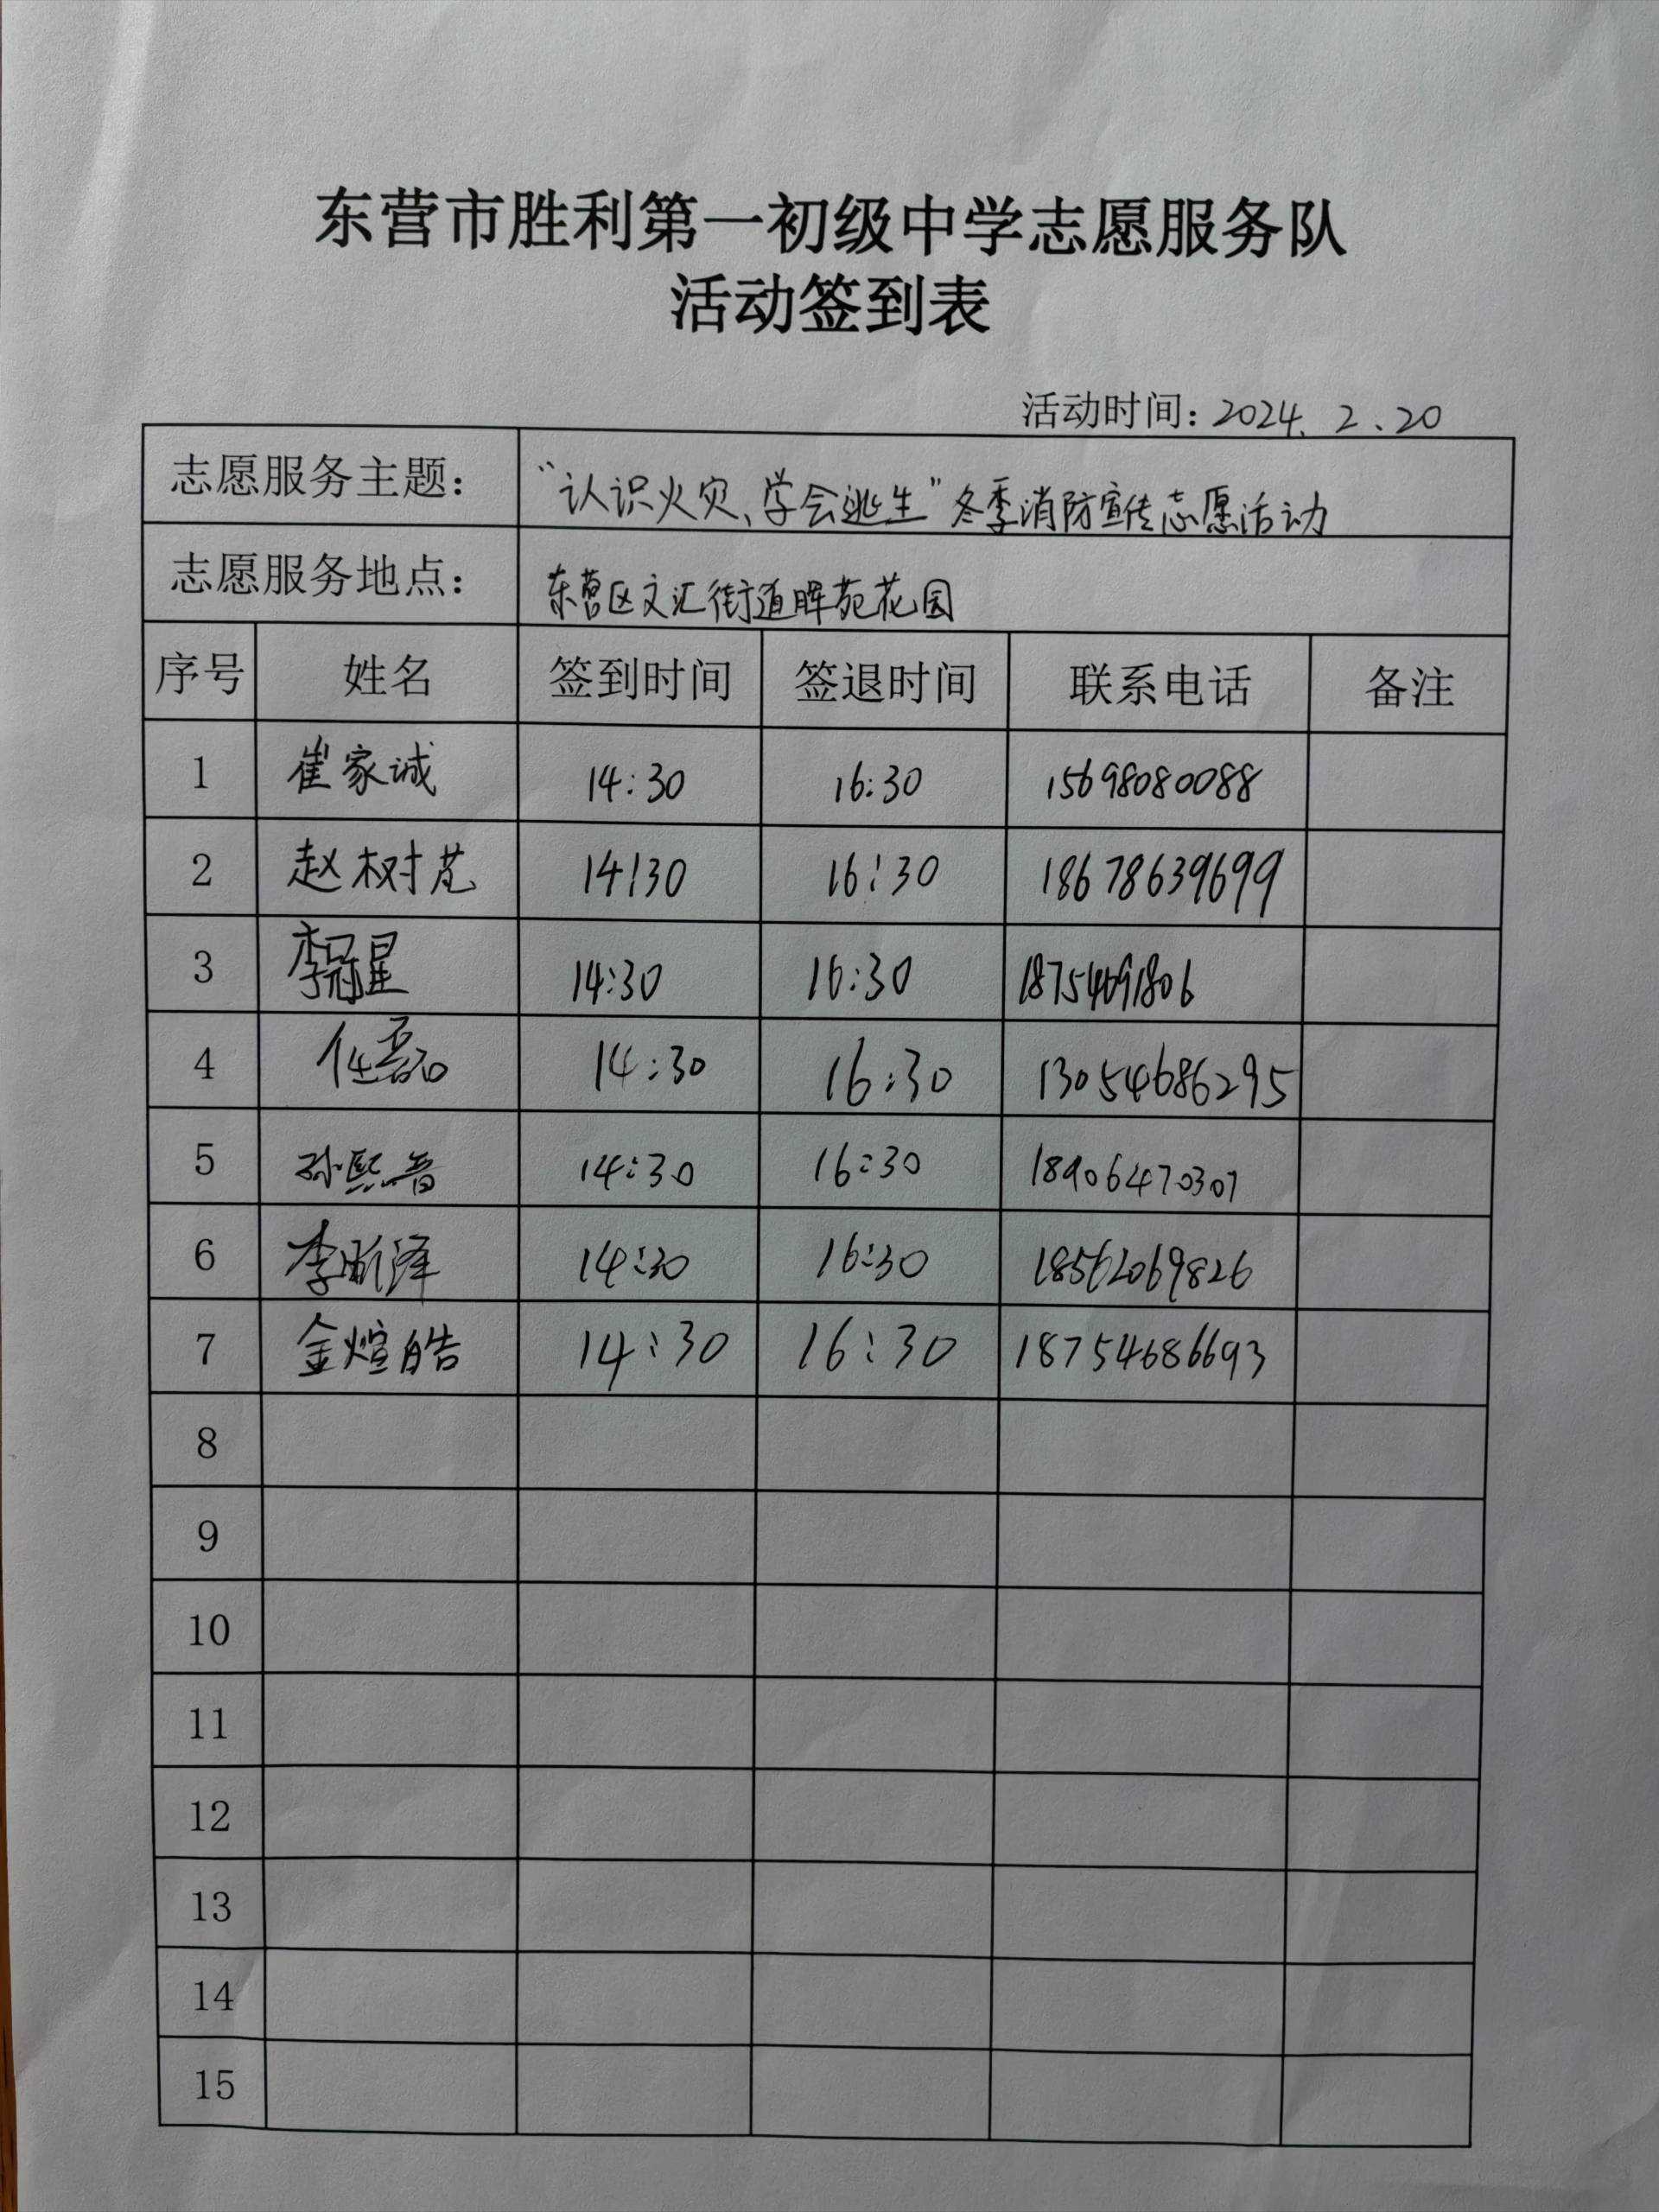 东营市胜利第一初级中学志愿服务队
活动签到表
活动时间：2024.2.20
志愿服务主题： “认识火灾、学会逃生”冬季消防宣传志愿活动
志愿服务地点： 东营区文汇街道晖苑花园
序号 姓名 签到时间 签退时间 联系电话 备注
1 崔家诚 14:30 16:30 15698080088
2 赵树 14:30 16:30 18678639699
3 李冠星 14:30 16:30 18754691806
4 任磊 14:30 16:30 13054686295
5 孙熙 14:30 16:30 18906470307
6 李昕泽 14:30 16:30 18562069826
7 金煊皓 14:30 16:30 18754686693
8
9
10
11
12
13
14
15